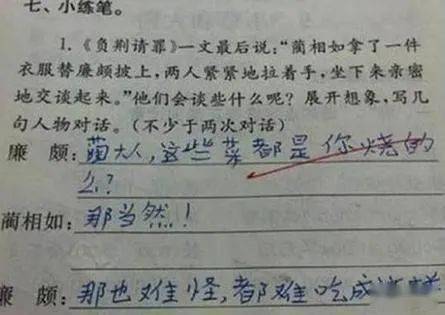 七、小练笔。
1.《负荆请罪》一文最后说:“蔺相如拿了一件
衣服替廉颇披上,两人紧紧地拉着手,坐下来亲密
地交谈起来。”他们会谈些什么呢?展开想象,写几
句人物对话。(不少于两次对话)
廉 颇:蔺大人,这些菜都是你烧的
么?
蔺相如:那当然!
廉 颇:那也难怪,都难吃成这样